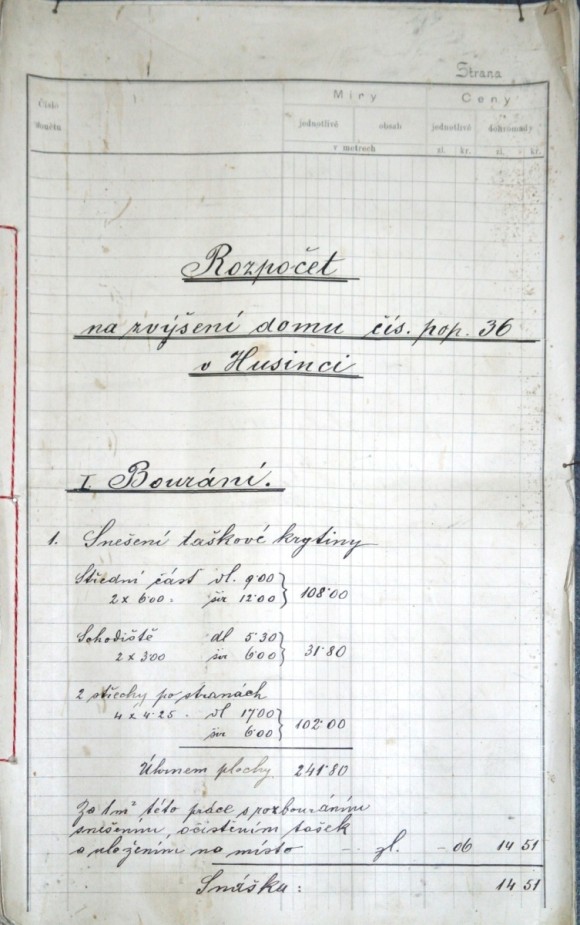 Strana
Míry Ceny
Číslo jednotlivě obsah jednotlivě dohromady
v metrech zl. kr. zl. kr.
Rozpočet
na zvýšení domu čís. pop. 36
v Husinci
I. Bourání.
1. Snešení taškové krytiny
Střední část dl. 9·00
2 x 6·00 = šir 12·00 } 108·00
Schodiště dl 5·30
2 x 3·00 šir 6·00 } 31·80
2 střechy po stranách
4 x 4·25 dl 17·00
šir 6·00 } 102·00
Úhrnem plochy 241·80
Za 1m² této práce s rozbouráním
snešením, očistěním tašek
a uložením na místo - zl. - 06 14 51
Snáška: 14 51